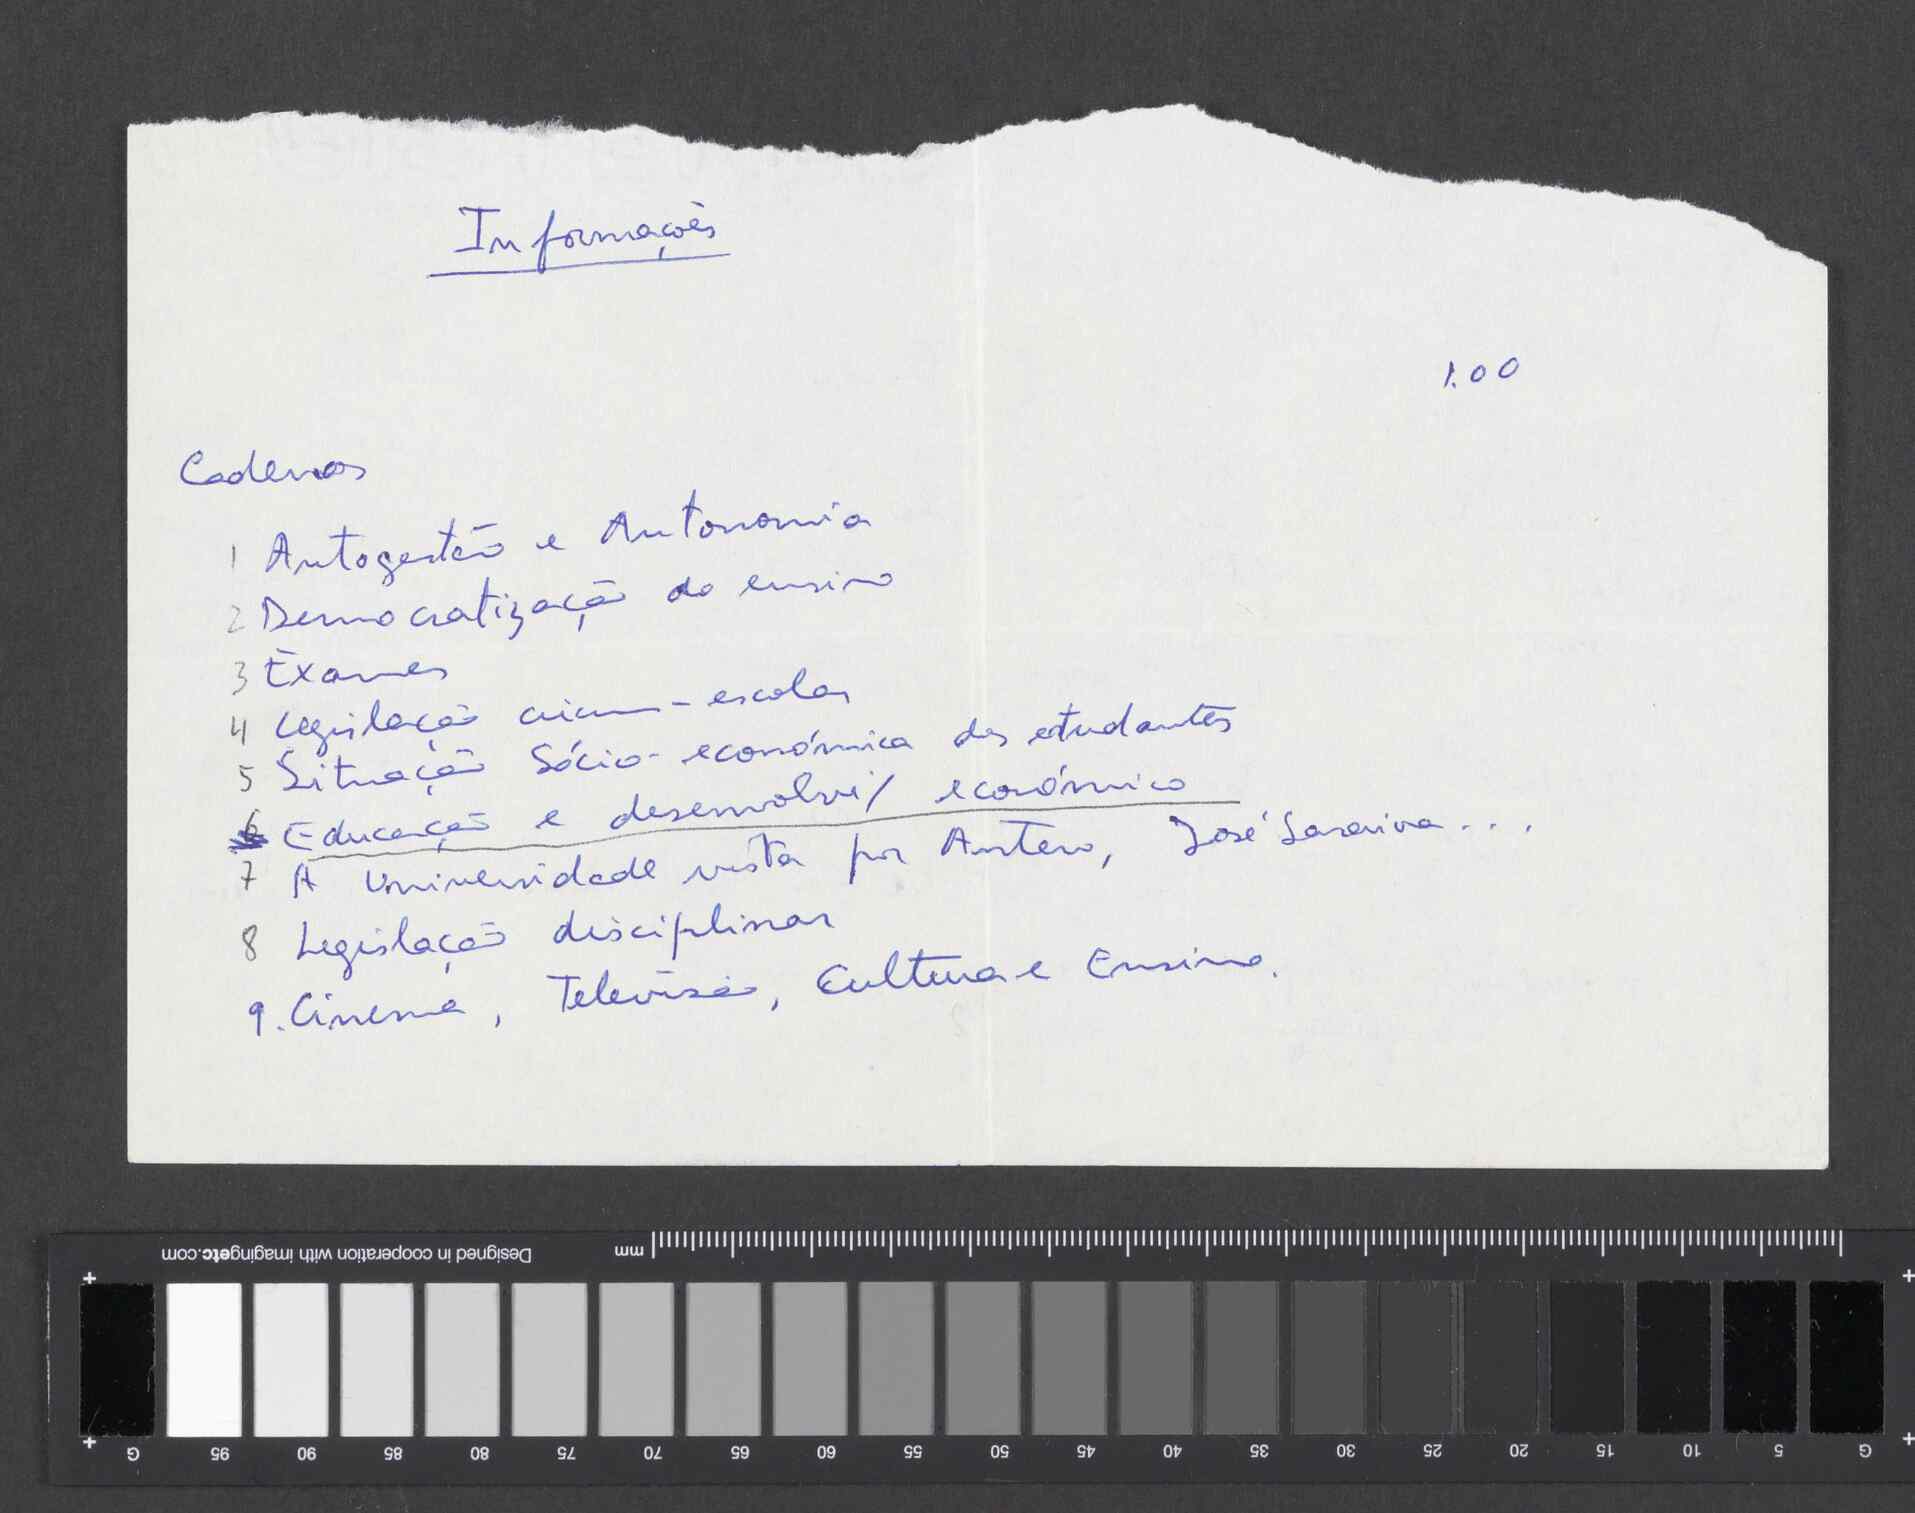 Informações
1.00
Cadernos
1 Autogestão e Autonomia
2 Democratização do ensino
3 Exames
4 Legislação circum-escolar
5 Situação Sócio-económica dos estudantes
6 Educação e desenvolvi/ económico
7 A Universidade vista por Antero, José Saraiva...
8 Legislação disciplinar
9. Cinema, Televisão, Cultura e Ensino.
Designed in cooperation with imagingetc.com
mm
G 95 90 85 80 75 70 65 60 55 50 45 40 35 30 25 20 15 10 5 G